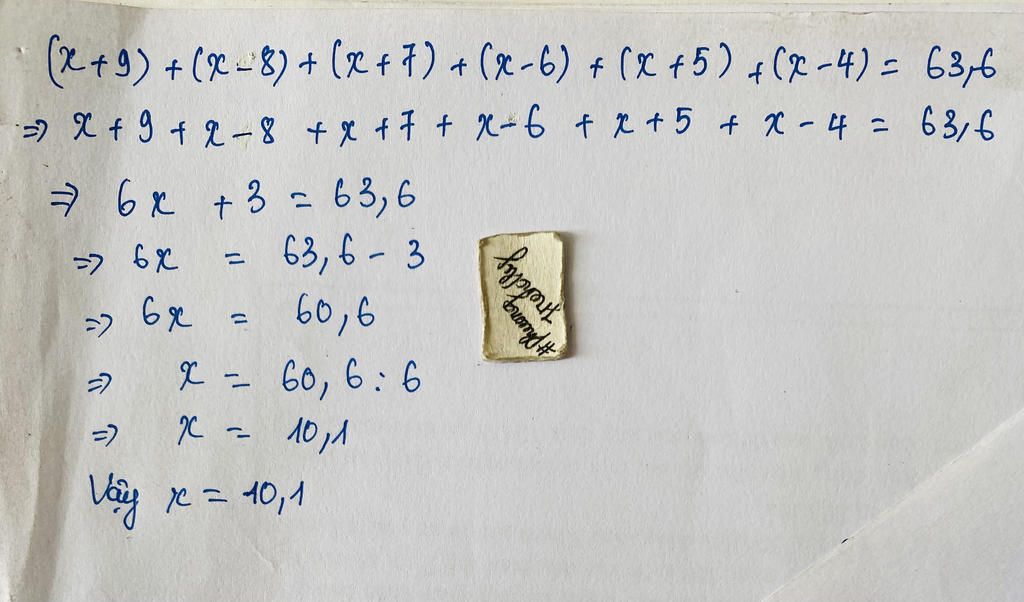 (x+9) + (x-8) + (x+7) + (x-6) + (x+5) + (x-4) = 63,6
=> x + 9 + x - 8 + x + 7 + x - 6 + x + 5 + x - 4 = 63,6
=> 6x + 3 = 63,6
=> 6x = 63,6 - 3
=> 6x = 60,6
=> x = 60,6 : 6
=> x = 10,1
Vậy x = 10,1